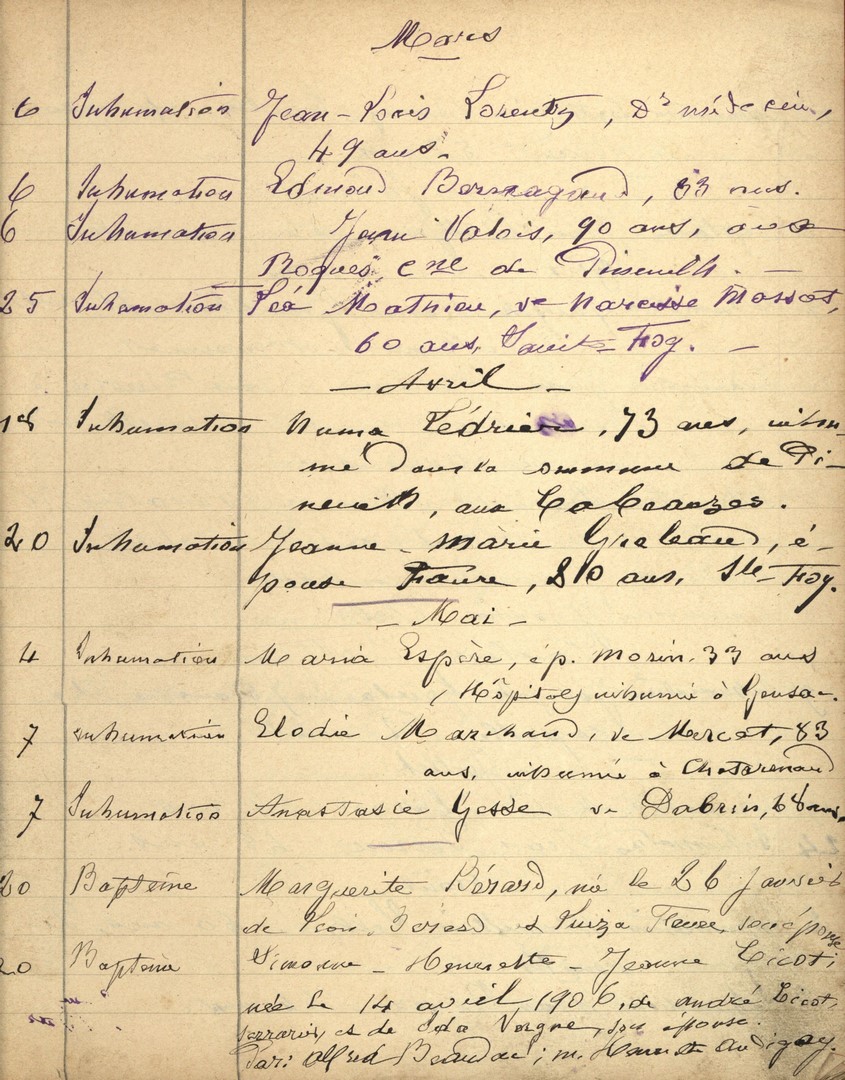 Mars
6 Inhumation Jean-Louis Lorentz, Dr médecin,
49 ans.
6 Inhumation Edmond, 33 ans.
6 Inhumation Jean Valois, 90 ans, aux
Roques cne de Pineuilh. —
25 Inhumation Léa Mathieu, ve Narcisse Massot,
60 ans, Sainte-Foy. —
— Avril —
18 Inhumation Numa Védrine, 73 ans, inhu-
mé dans la commune de Pi-
neuilh, aux.
20 Inhumation Jeanne-Marie, é-
pouse Faure, 80 ans, Ste-Foy.
— Mai —
4 Inhumation Maria Espère, ép. Morin, 33 ans
(Hôpital) inhumée à Gensac.
7 Inhumation Elodie Marchand, ve Mercat, 83
ans, inhumée à
7 Inhumation Anastasie Gesse ve, 68 ans.
20 Baptême Marguerite Bérard, née le 26 janvier
de Bérard et Luiza, son épouse
20 Baptême Simonne-Henriette-Jeanne Licot,
née le 14 avril 1906, de André Licot,
et de Ida Vergne, son épouse.
Par: Alfred; m. Henriette